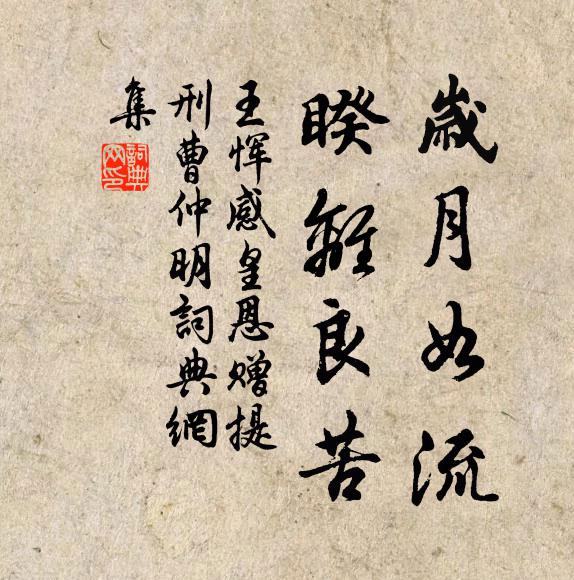 歲月如流
睽離良苦
王惲感皇恩贈提
刑曹仲明詞典網
集
詞典
网印